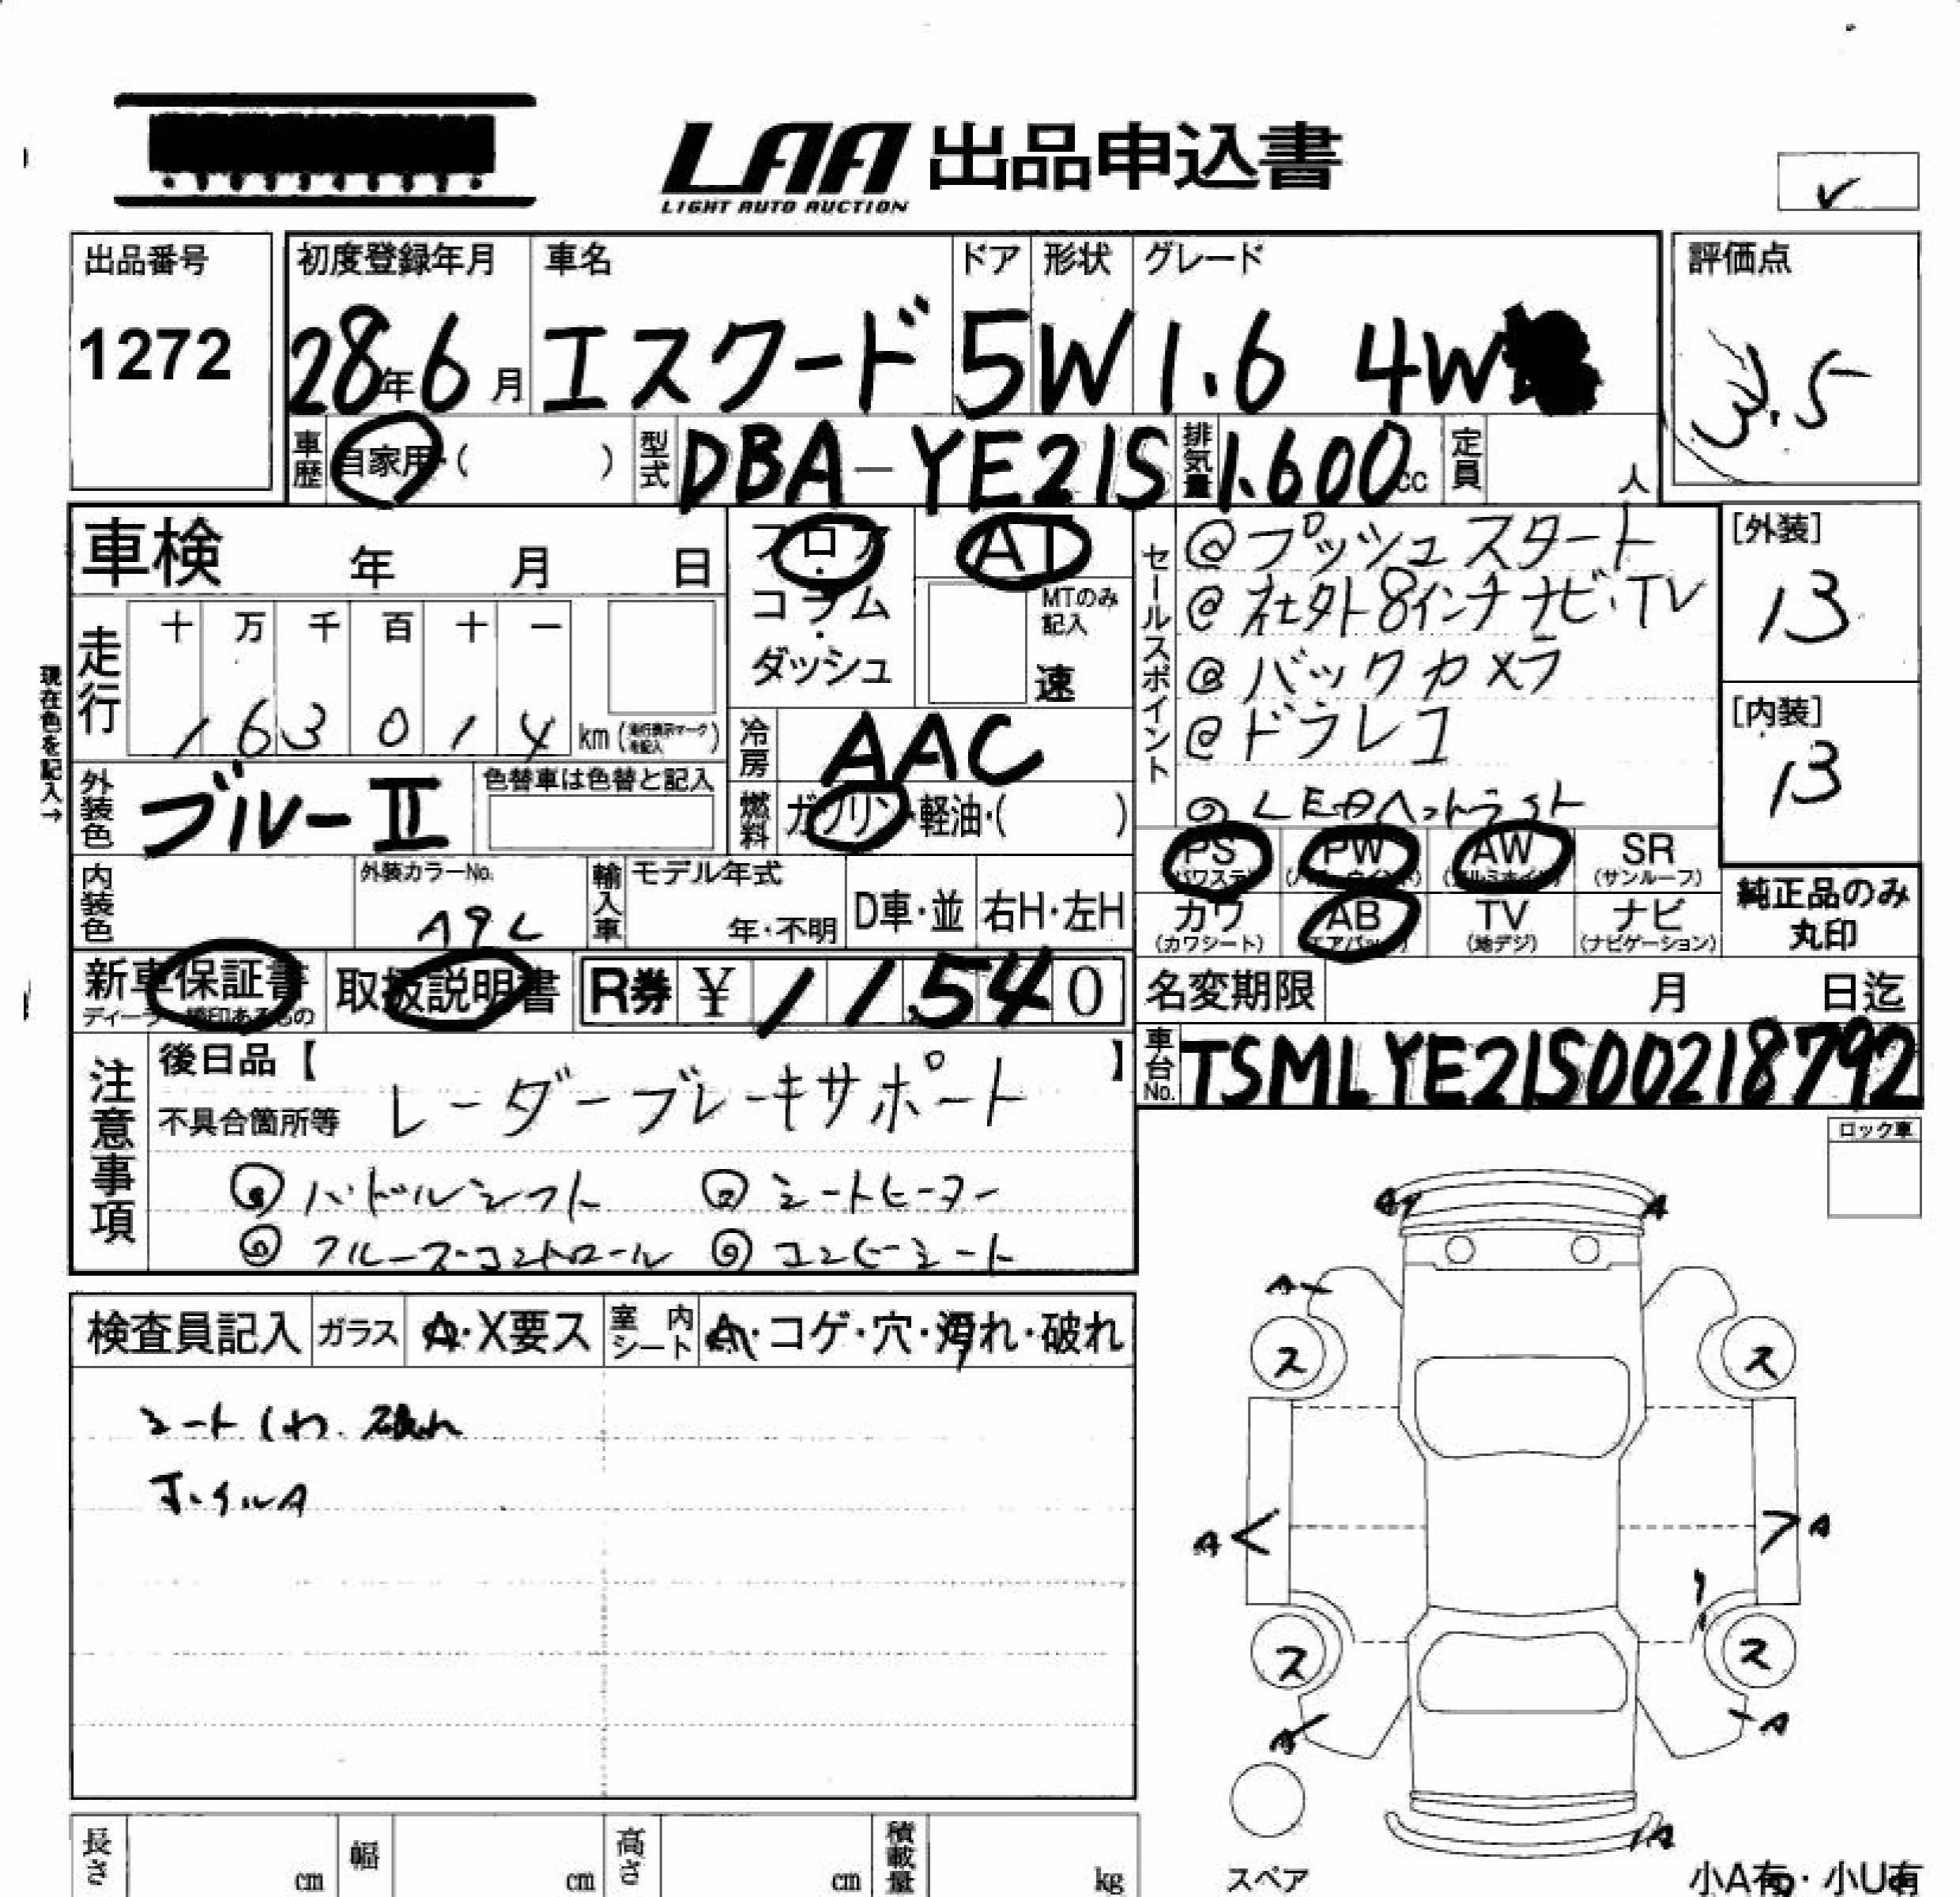 LAA 出品申込書
LIGHT AUTO AUCTION
出品番号
1272
初度登録年月
28年6月
車名
エスクード
ドア
5
形状
W
グレード
1.6 4W
評価点
3.5
車歴 自家用・( )
型式 DBA-YE21S
排気量 1.600cc
定員 人
車検 年 月 日
フロア・コラム・ダッシュ
AT
MTのみ記入
速
走行
十 万 千 百 十 一
1 6 3 0 1 4 km (走行表示マークを記入)
現在色を記入→
外装色 ブルーII
色替車は色替と記入
冷房 AAC
燃料 ガソリン・軽油・( )
セールスポイント
@プッシュスタート
@社外8インチナビ・TV
@バックカメラ
@ドラレコ
LEDヘッドライト
[外装]
13
[内装]
13
内装色
外装カラーNo.
輸入車
モデル年式
年・不明
D車・並
右H・左H
PS (パワステ)
PW (パワーウインド)
AW (アルミホイル)
SR (サンルーフ)
カワ (カワシート)
AB (エアバック)
TV (地デジ)
ナビ (ナビゲーション)
純正品のみ
丸印
新車保証書
取扱説明書
R券 ¥ 11540
名変期限 月 日迄
車台No. TSMLYE21S00218792
注意事項
後日品【 】
不具合箇所等 レーダーブレーキサポート
パドルシフト シートヒーター
クルーズコントロール コンビシート
ロック車
検査員記入
ガラス A・X要ス
室内シート A・コゲ・穴・汚れ・破れ
シートしわ、破れ
ホイルA
A A
A
ス ス
A A
ス ス
A A
A
スペア
長さ cm
幅 cm
高さ cm
積載量 kg
小A有・小U有